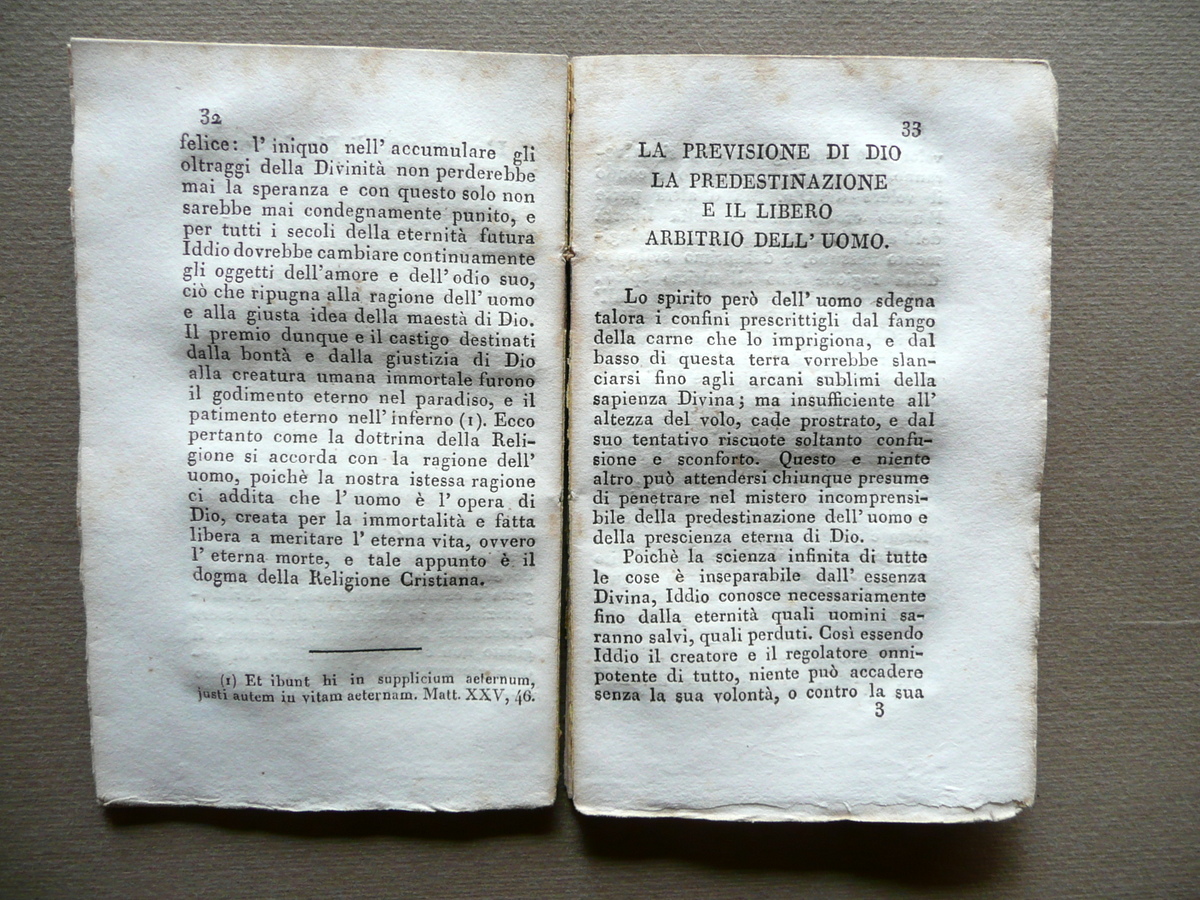 32
felice: l' iniquo nell' accumulare gli
oltraggi della Divinità non perderebbe
mai la speranza e con questo solo non
sarebbe mai condegnamente punito, e
per tutti i secoli della eternità futura
Iddio dovrebbe cambiare continuamente
gli oggetti dell'amore e dell'odio suo,
ciò che ripugna alla ragione dell' uomo
e alla giusta idea della maestà di Dio.
Il premio dunque e il castigo destinati
dalla bontà e dalla giustizia di Dio
alla creatura umana immortale furono
il godimento eterno nel paradiso, e il
patimento eterno nell' inferno (1). Ecco
pertanto come la dottrina della Reli-
gione si accorda con la ragione dell'
uomo, poichè la nostra istessa ragione
ci addita che l' uomo è l' opera di
Dio, creata per la immortalità e fatta
libera a meritare l' eterna vita, ovvero
l' eterna morte, e tale appunto è il
dogma della Religione Cristiana.
(1) Et ibunt hi in supplicium aeternum,
justi autem in vitam aeternam. Matt. XXV, 46.
33
LA PREVISIONE DI DIO
LA PREDESTINAZIONE
E IL LIBERO
ARBITRIO DELL' UOMO.
Lo spirito però dell' uomo sdegna
talora i confini prescrittigli dal fango
della carne che lo imprigiona, e dal
basso di questa terra vorrebbe slan-
ciarsi fino agli arcani sublimi della
sapienza Divina; ma insufficiente all'
altezza del volo, cade prostrato, e dal
suo tentativo riscuote soltanto confu-
sione e sconforto. Questo e niente
altro può attendersi chiunque presume
di penetrare nel mistero incomprensi-
bile della predestinazione dell' uomo e
della prescienza eterna di Dio.
Poichè la scienza infinita di tutte
le cose è inseparabile dall' essenza
Divina, Iddio conosce necessariamente
fino dalla eternità quali uomini sa-
ranno salvi, quali perduti. Così essendo
Iddio il creatore e il regolatore onni-
potente di tutto, niente può accadere
senza la sua volontà, o contro la sua
3